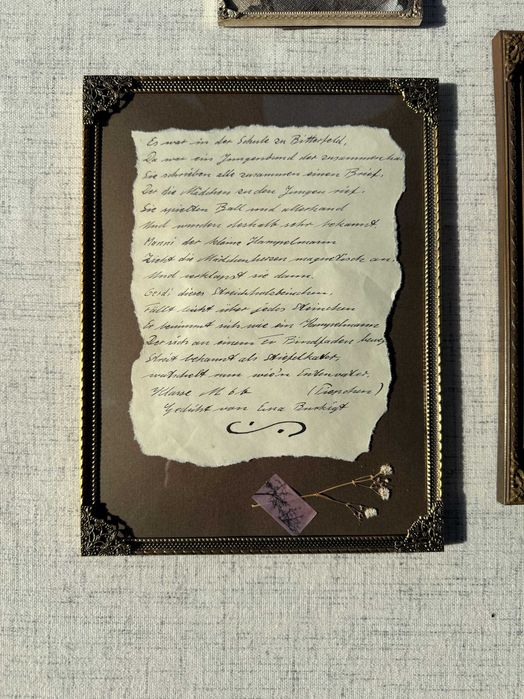 Es war in der Schule zu Bitterfeld,
Da war ein Jungenbund der zusammen
Sie schrieben alle zusammen einen Brief,
Der die Mädchen zu den Jungen rief.
Sie spielten Ball und allerhand
Und wurden deshalb sehr bekannt
Manni der kleine Hampelmann
Zieht die Mädchenherzen magnetisch an.
Und sie dann.
dieses Streichholzbeinchen,
Fällt leicht über jedes Steinchen
Er benimmt sich wie ein Hampelmann
Der sich an einem Bindfaden
bekannt als Stiefelkater,
watschelt nun wie'n Entenvater.
Klasse M 6b
Gedichtet von